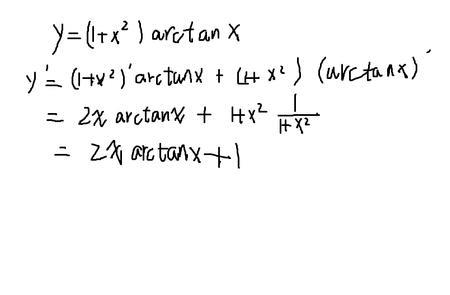 y=(1+x²)arctanx
y'=(1+x²)'arctanx+(1+x²)(arctanx)'
=2x arctanx+1+x² 1/1+x²
=2x arctanx+1